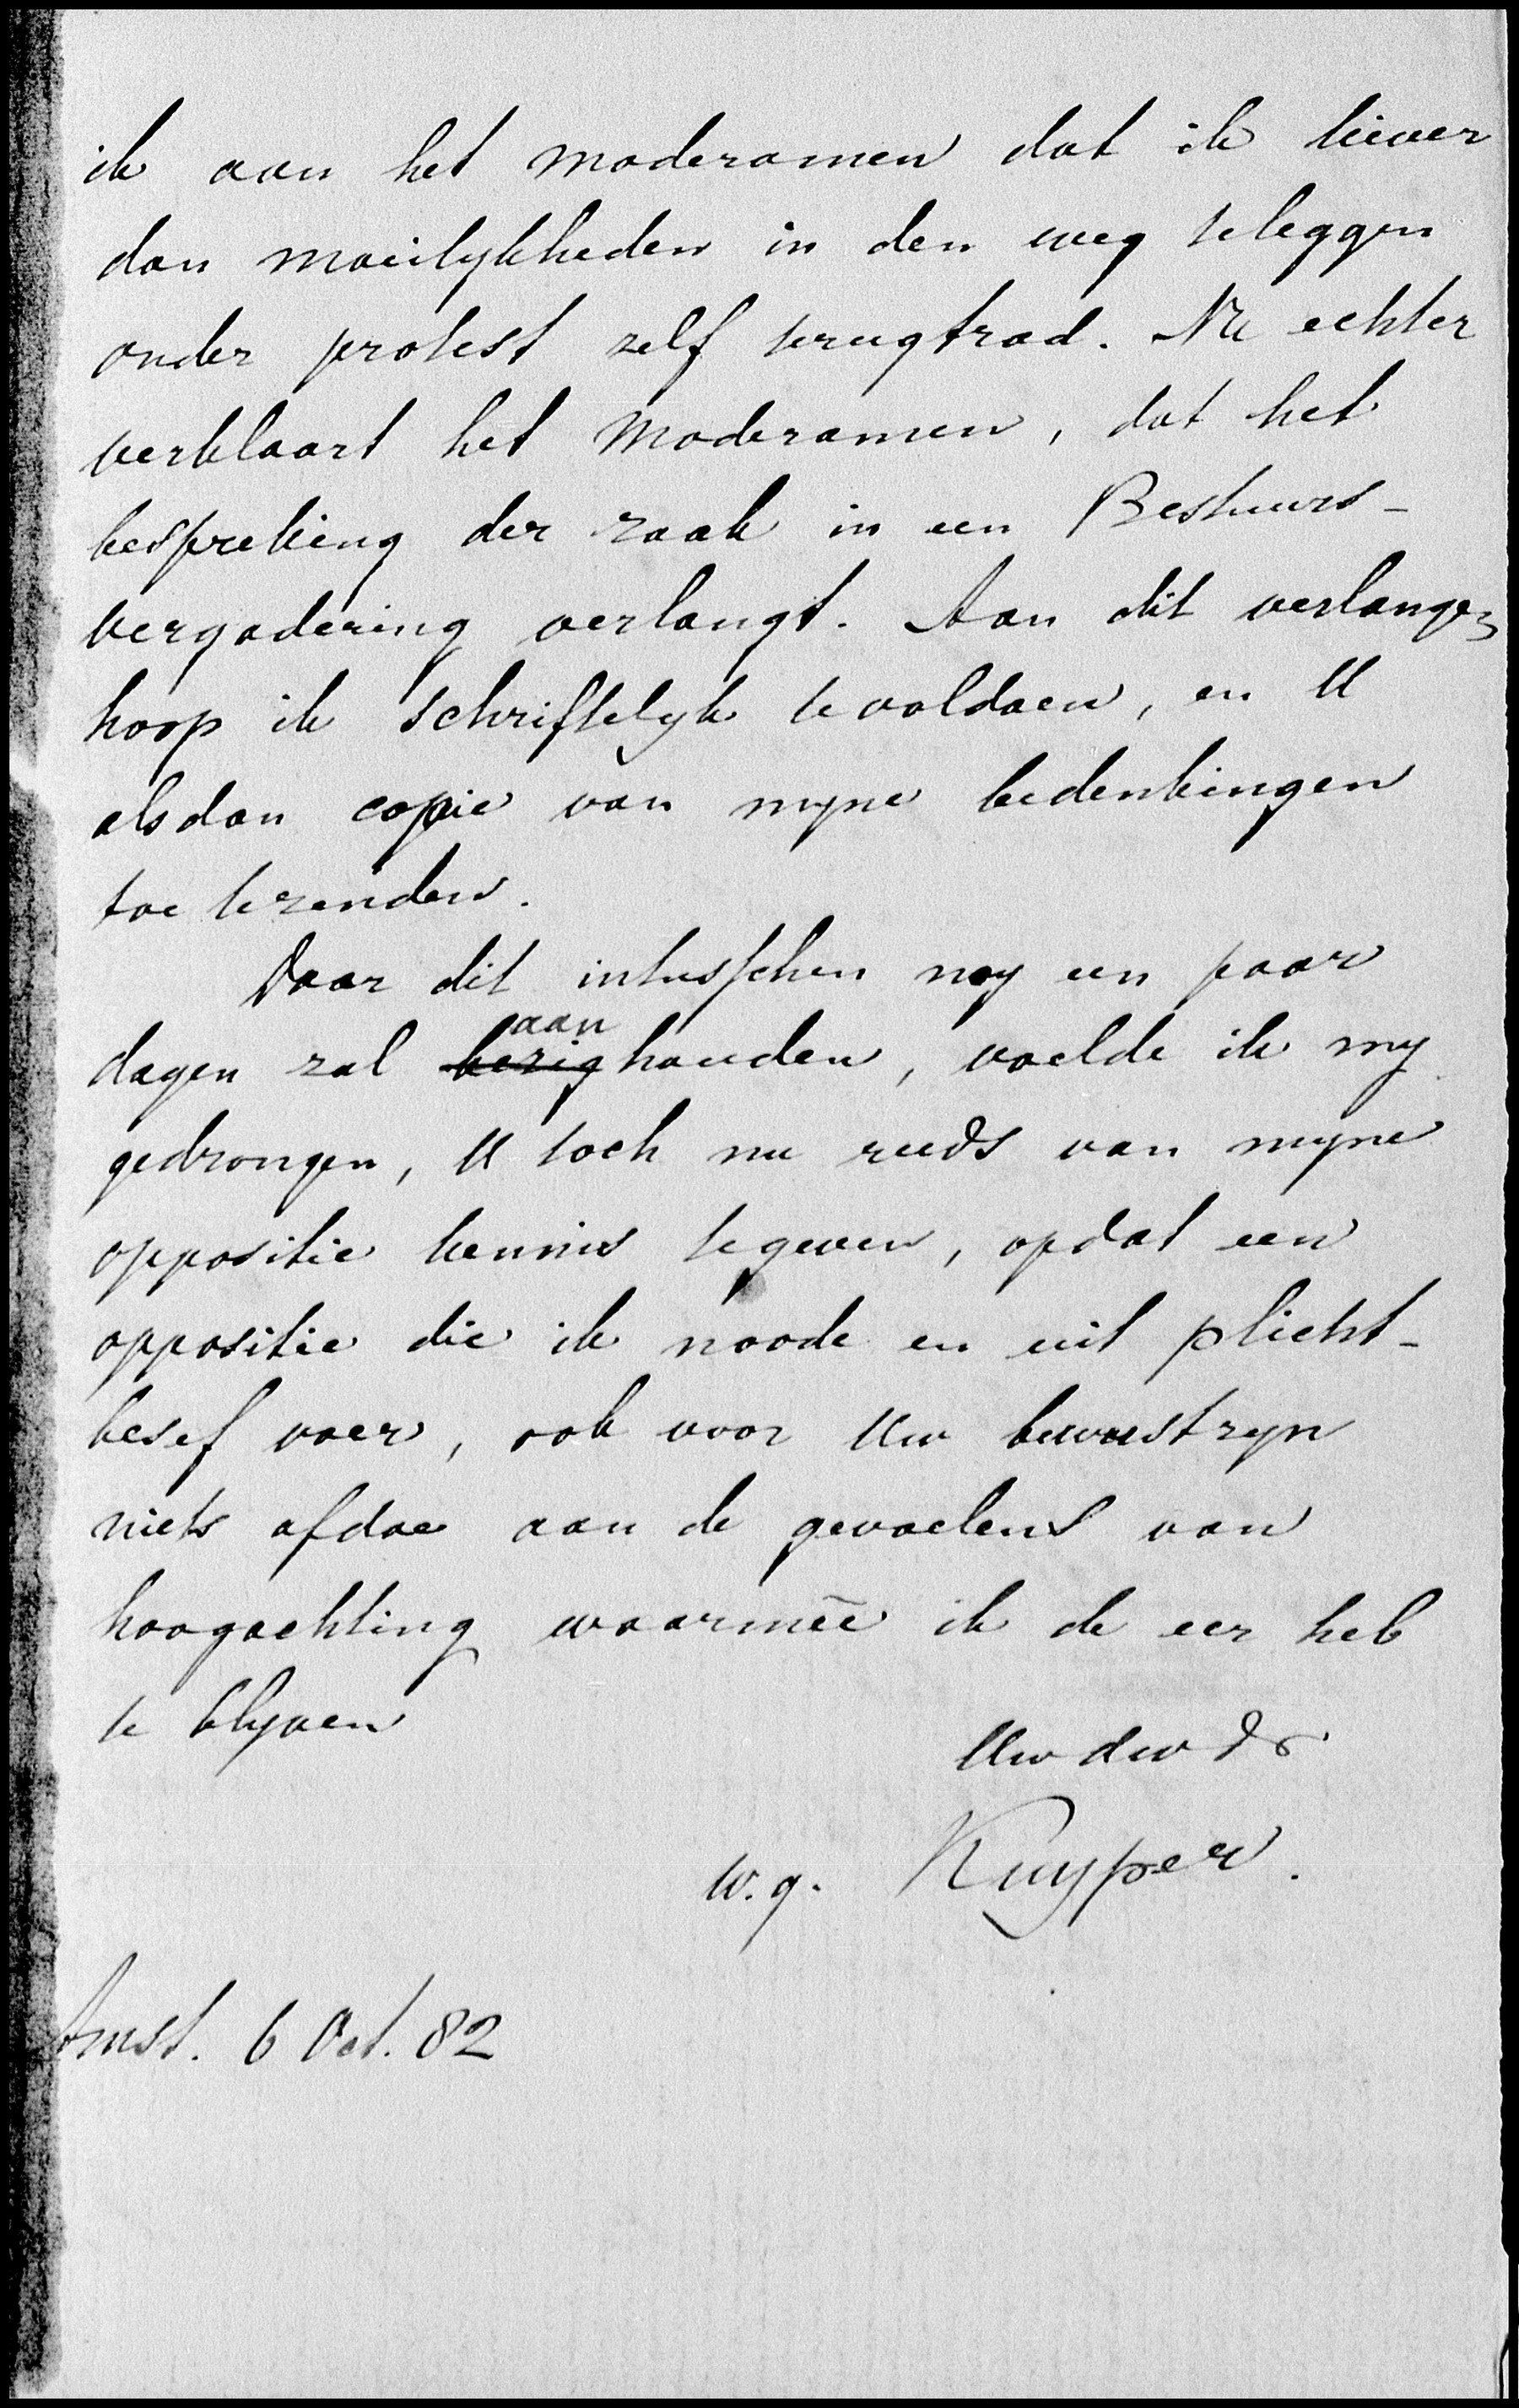 ik aan het moderamen dat ik liever
dan moeilykheden in den weg te leggen
onder protest zelf terugtrad. Nu echter
verklaart het Moderamen, dat het
bespreking der zaak in een Bestuurs-
vergadering verlangt. Aan dit verlangen
hoop ik schriftelyk te voldoen, en U
alsdan copie van myne bedenkingen
toe te zenden.
Daar dit intusschen nog een paar
aan
dagen zal bezighouden, voelde ik my
gedrongen, U toch nu reeds van myne
oppositie kennis te geven, opdat een
oppositie die ik noode en uit plicht-
besef voer, ook voor Uw bewustzyn
niets afdoe aan de gevoelens van
hoogachting waarmēe ik de eer heb
te blyven
Uw dw dr
w.g. Kuyper.
Amst. 6 Oct. 82